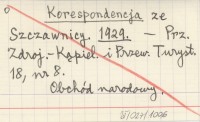 Korespondencja ze
Szczawnicy. 1929. – Prz.
Zdroj.-Kąpiel. i Przew. Turyst.
18, nr 8.
Obchód narodowy.